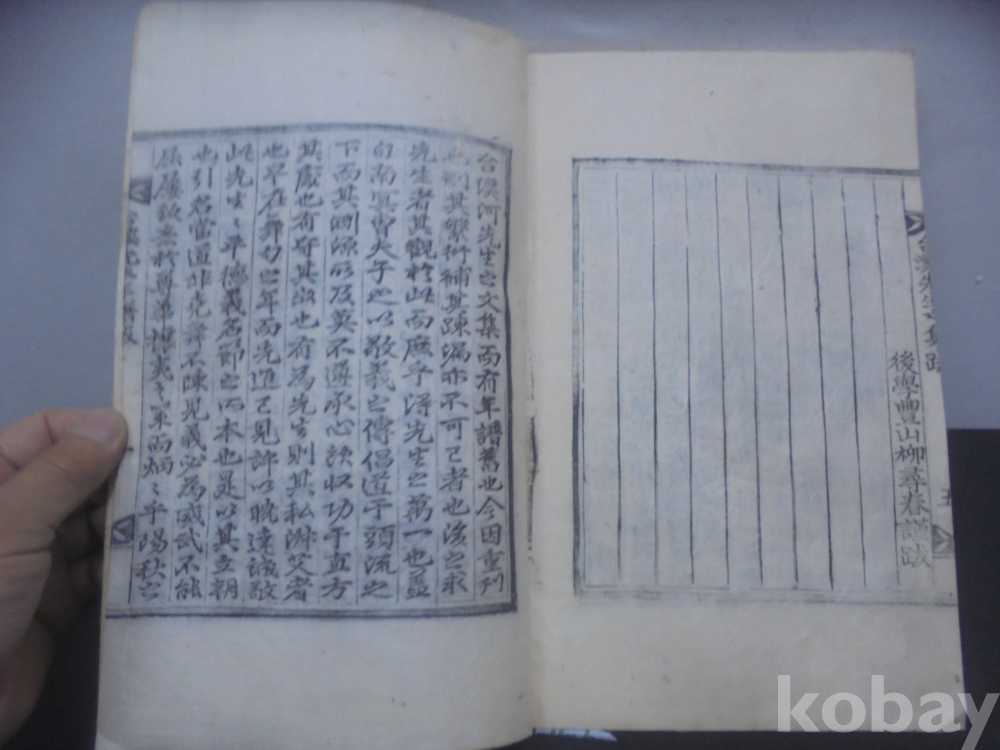 後學豐山柳尋春謹跋
五
台溪河先生之文集而有年譜舊也今因重刊
此則其繁衍補其踈漏亦不可已者也後之求
先生者其觀於此而庶乎得先生之萬一也蓋
自南冥曺夫子之以敬義之傳倡道于頭流之
下而其淵源所及莫不遵承心法收功于直方
其處也有守其出也有爲先生則其私淑艾者
也早在舞勺之年而先進已見許以曉達誠敬
此先生之平德義名節之所本也是以其立朝
也引君當道非堯舜不陳見義必爲威武不能
屈屢致意於尊華攘夷之策而炳炳乎陽秋之
kobay